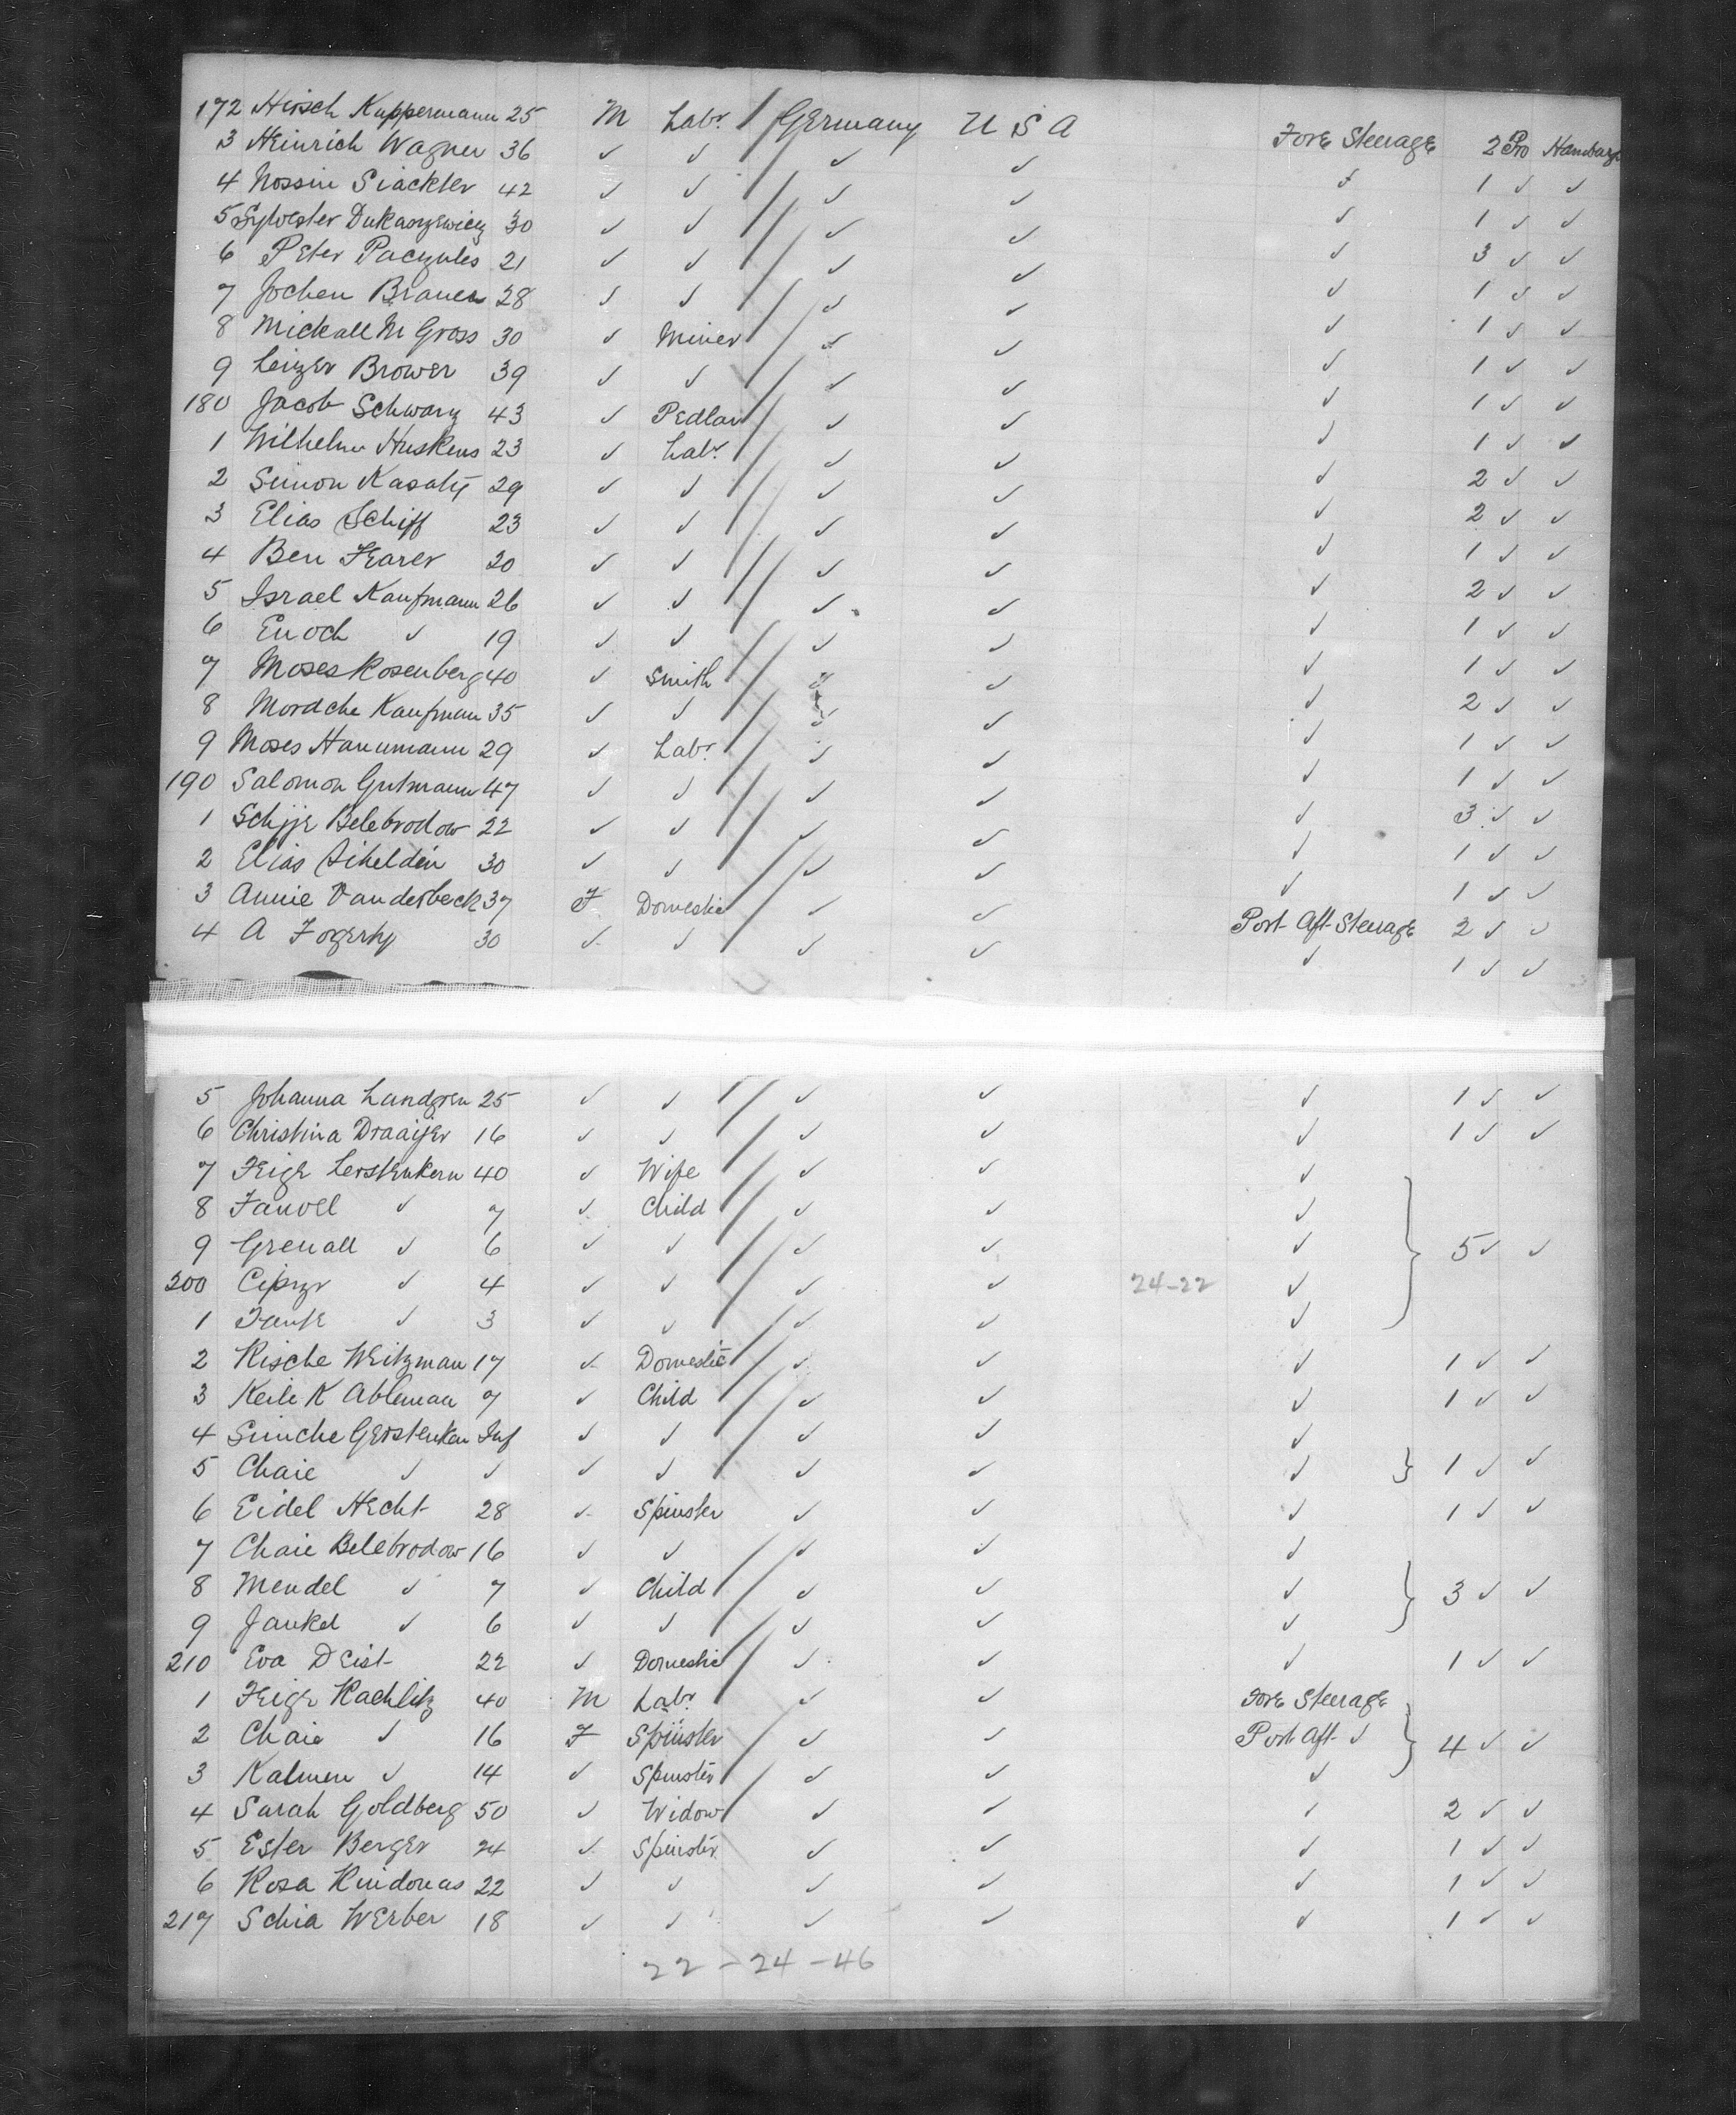 172 Hirsch Kuppermann 25 M Labr. Germany U S A Fore Steerage 2 Pro Hamburg
3 Heinrich Wagner 36 ✓ ✓ ✓ ✓ ✓ 1 ✓ ✓
4 Nossin Siackter 42 ✓ ✓ ✓ ✓ ✓ 1 ✓ ✓
5 Sylvester 30 ✓ ✓ ✓ ✓ ✓ 3 ✓ ✓
6 Peter Paczules 21 ✓ ✓ ✓ ✓ ✓ 1 ✓ ✓
7 Jochen Brauer 28 ✓ ✓ ✓ ✓ ✓ 1 ✓ ✓
8 Mickall M Gross 30 ✓ Miner ✓ ✓ ✓ 1 ✓ ✓
9 Leizer Brower 39 ✓ ✓ ✓ ✓ ✓ 1 ✓ ✓
180 Jacob Schwarz 43 ✓ Pedlar ✓ ✓ ✓ 1 ✓ ✓
1 Wilhelm Huskens 23 ✓ Labr. ✓ ✓ ✓ 2 ✓ ✓
2 Simon 29 ✓ ✓ ✓ ✓ ✓ 2 ✓ ✓
3 Elias Schiff 23 ✓ ✓ ✓ ✓ ✓ 1 ✓ ✓
4 Ben Fearer 20 ✓ ✓ ✓ ✓ ✓ 2 ✓ ✓
5 Israel Kaufmann 26 ✓ ✓ ✓ ✓ ✓ 1 ✓ ✓
6 Enoch ✓ 19 ✓ ✓ ✓ ✓ ✓ 1 ✓ ✓
7 Moses Rosenberg 40 ✓ Smith ✓ ✓ ✓ 2 ✓ ✓
8 Mordche Kaufman 35 ✓ ✓ ✓ ✓ ✓ 1 ✓ ✓
9 Moses Hanumann 29 ✓ Labr. ✓ ✓ ✓ 1 ✓ ✓
190 Salomon Gutmann 47 ✓ ✓ ✓ ✓ ✓ 3 ✓ ✓
1 Schjje Belebrodow 22 ✓ ✓ ✓ ✓ ✓ 1 ✓ ✓
2 Elias 30 ✓ ✓ ✓ ✓ ✓ 1 ✓ ✓
3 Annie Vanderbeck 37 F Domestic ✓ ✓ Port Aft Steerage 2 ✓ ✓
4 A Fogerty 30 ✓ ✓ ✓ ✓ ✓ 1 ✓ ✓
5 Johanna Lundgren 25 ✓ ✓ ✓ ✓ ✓ 1 ✓ ✓
6 Christina Draaijer 16 ✓ ✓ ✓ ✓ ✓ 1 ✓ ✓
7 Feige Lerstenkern 40 ✓ Wife ✓ ✓ ✓
8 Fanvel ✓ 7 ✓ Child ✓ ✓ ✓
9 Grenall ✓ 6 ✓ ✓ ✓ ✓ ✓ 5 ✓ ✓
200 ✓ 4 ✓ ✓ ✓ ✓ 24-22 ✓
1 ✓ 3 ✓ ✓ ✓ ✓ ✓
2 Rische Weitzman 17 ✓ Domestic ✓ ✓ ✓ 1 ✓ ✓
3 Keile K Ableman 7 ✓ Child ✓ ✓ ✓ 1 ✓ ✓
4 Simche Gerstenken Inf ✓ ✓ ✓ ✓ ✓
5 Chaie ✓ ✓ ✓ ✓ ✓ ✓ ✓ 1 ✓ ✓
6 Eidel Hecht 28 ✓ Spinster ✓ ✓ ✓ 1 ✓ ✓
7 Chaie Belebrodow 16 ✓ ✓ ✓ ✓ ✓
8 Mendel ✓ 7 ✓ Child ✓ ✓ ✓ 3 ✓ ✓
9 Jankel ✓ 6 ✓ ✓ ✓ ✓ ✓
210 Eva Deist 22 ✓ Domestic ✓ ✓ ✓ 1 ✓ ✓
1 Feige Kachlitz 40 M Labr. ✓ ✓ Fore Steerage
2 Chaie ✓ 16 F Spinster ✓ ✓ Port Aft ✓ 4 ✓ ✓
3 Kalmen ✓ 14 ✓ Spinster ✓ ✓ ✓
4 Sarah Goldberg 50 ✓ Widow ✓ ✓ ✓ 2 ✓ ✓
5 Ester Berger 24 ✓ Spinster ✓ ✓ ✓ 1 ✓ ✓
6 Rosa 22 ✓ ✓ ✓ ✓ ✓ 1 ✓ ✓
217 Schia Werber 18 ✓ ✓ ✓ ✓ ✓ 1 ✓ ✓
22 - 24 - 46